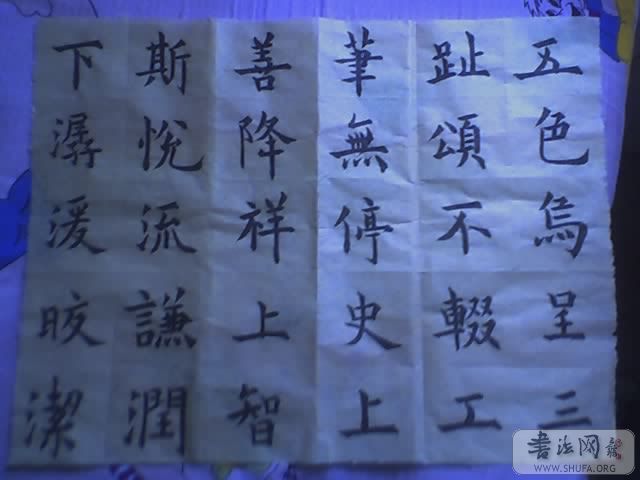 五色烏呈三
趾頌不輟工
筆無停史上
善降祥上智
斯悅流謙潤
下潺湲晈潔
書法网
WWW.SHUFA.ORG